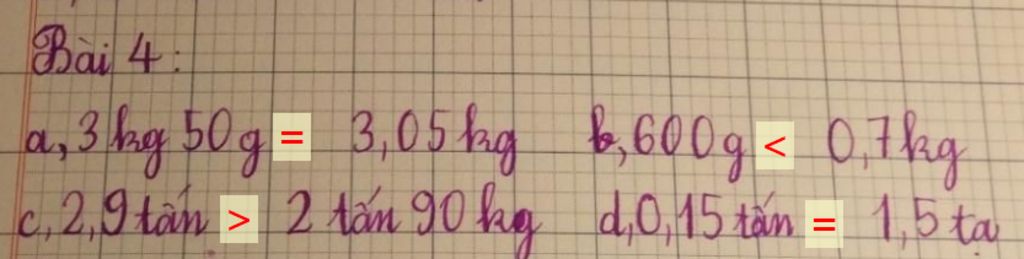 Bài 4:
a, 3kg 50g = 3,05kg b, 600g < 0,7kg
c, 2,9 tấn > 2 tấn 90 kg d, 0,15 tấn = 1,5 tạ